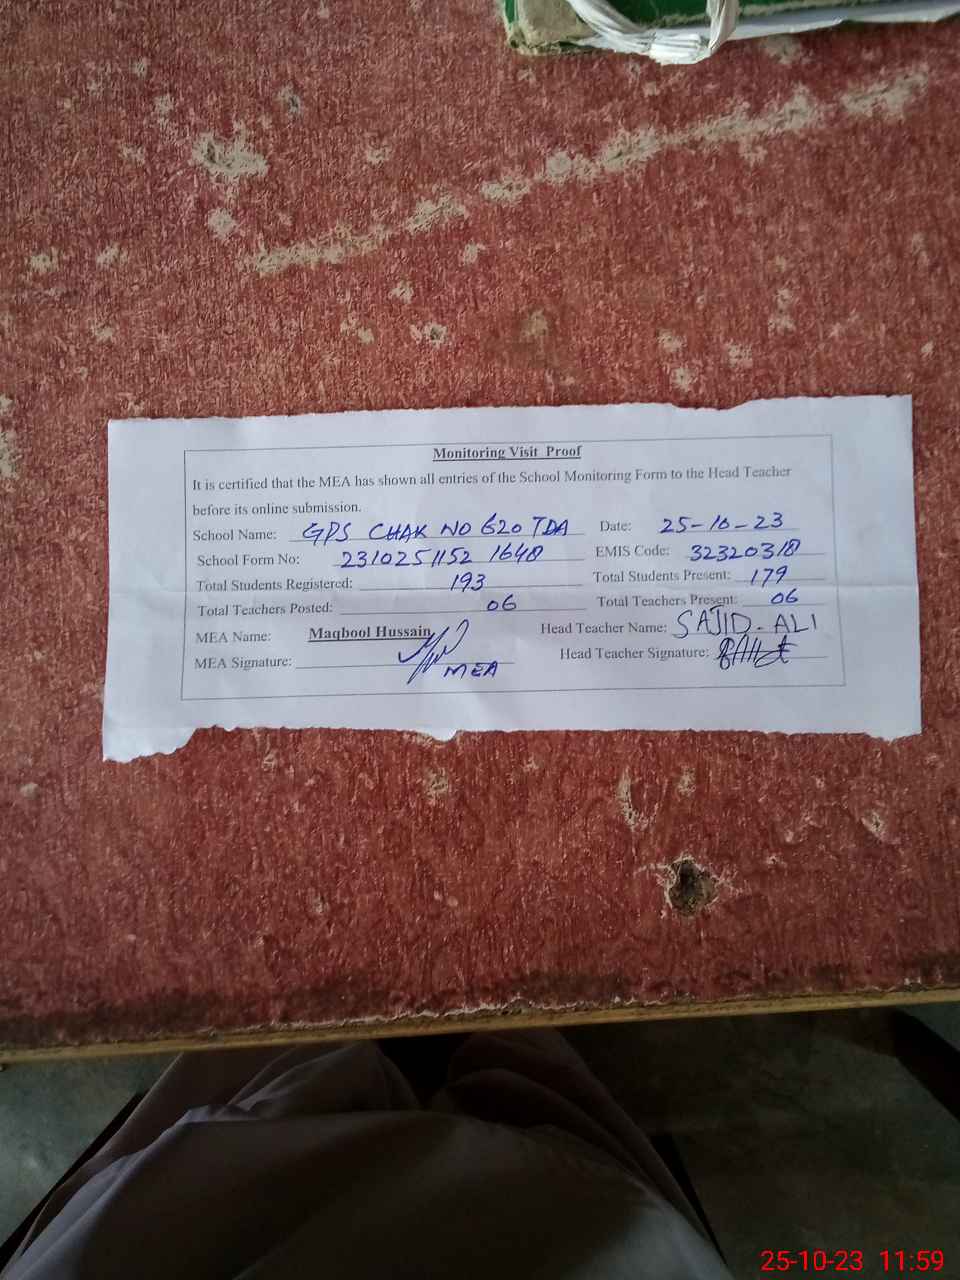 Monitoring Visit Proof
It is certified that the MEA has shown all entries of the School Monitoring Form to the Head Teacher
before its online submission.
School Name: GPS CHAK NO 620 TDA Date: 25-10-23
School Form No: 2310251152 1648 EMIS Code: 32320318
Total Students Registered: 193 Total Students Present: 179
Total Teachers Posted: 06 Total Teachers Present: 06
MEA Name: Maqbool Hussain Head Teacher Name: SAJID-ALI
MEA Signature: MEA Head Teacher Signature:
25-10-23 11:59